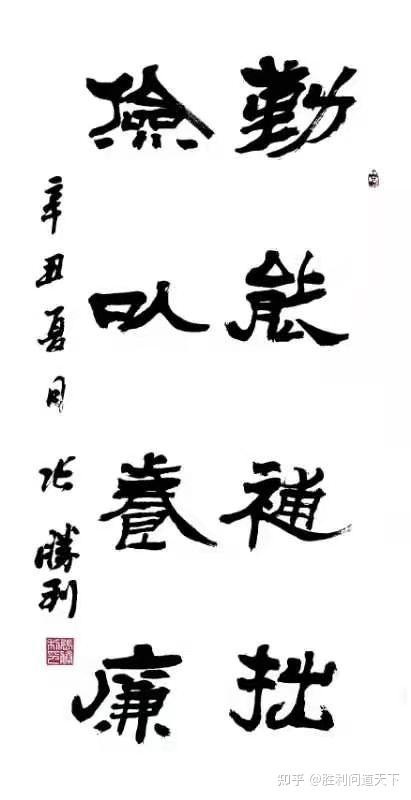 勤能補拙
儉以養廉
辛丑夏月
張勝利
知乎 @胜利问道天下